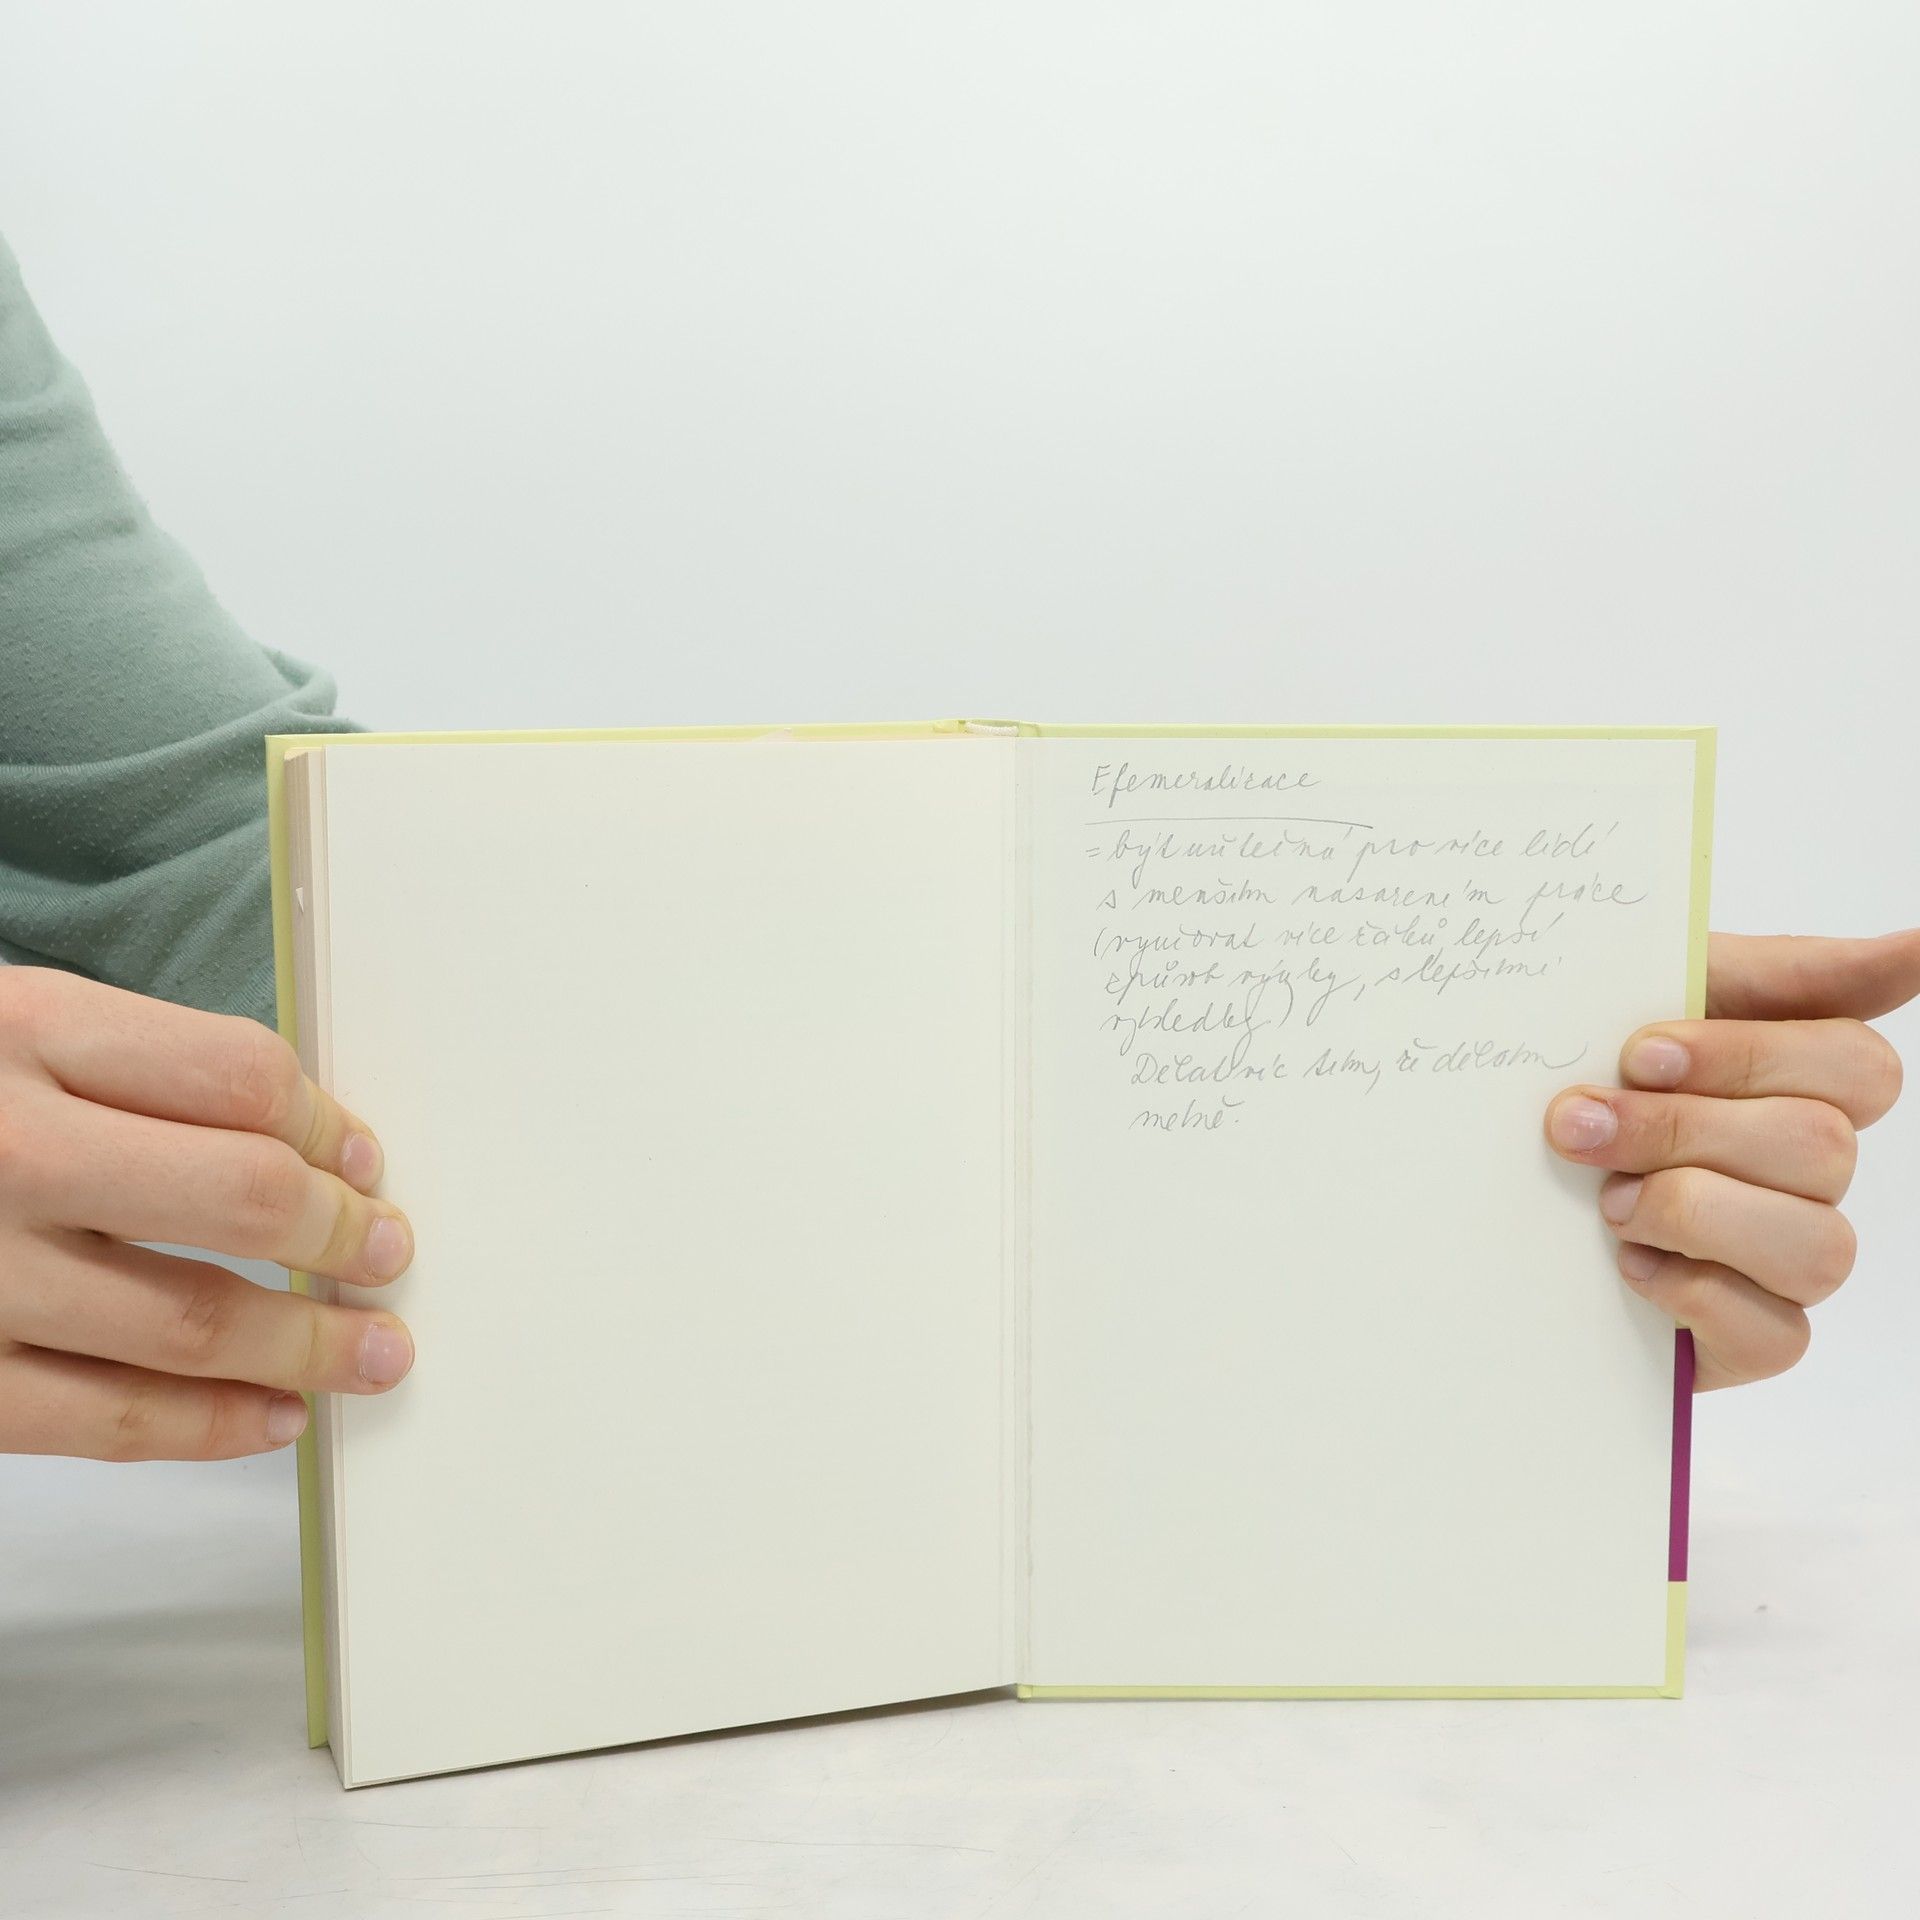 Efemeralizace
= být užitečná pro více lidí
s menším nasazením práce
(vyučovat více žáků, lepší
způsob výuky, s lepšími
výsledky)
Dělat víc tím, že dělám
méně.